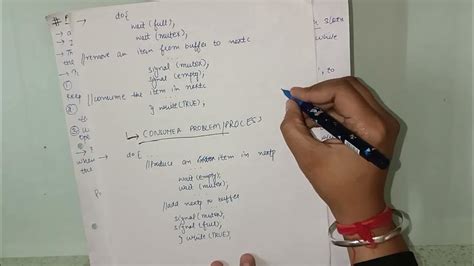 do{
wait (full);
wait (mutex);
//remove an item from buffer to nextc
signal (mutex);
signal (empty);
//consume the item in nextc
} while (TRUE);
CONSUMER PROBLEM/PROCESS
do{
//Produce an item in nextp
wait (empty);
wait (mutex);
//add nextp to buffer
signal (mutex);
signal (full);
} while (TRUE)